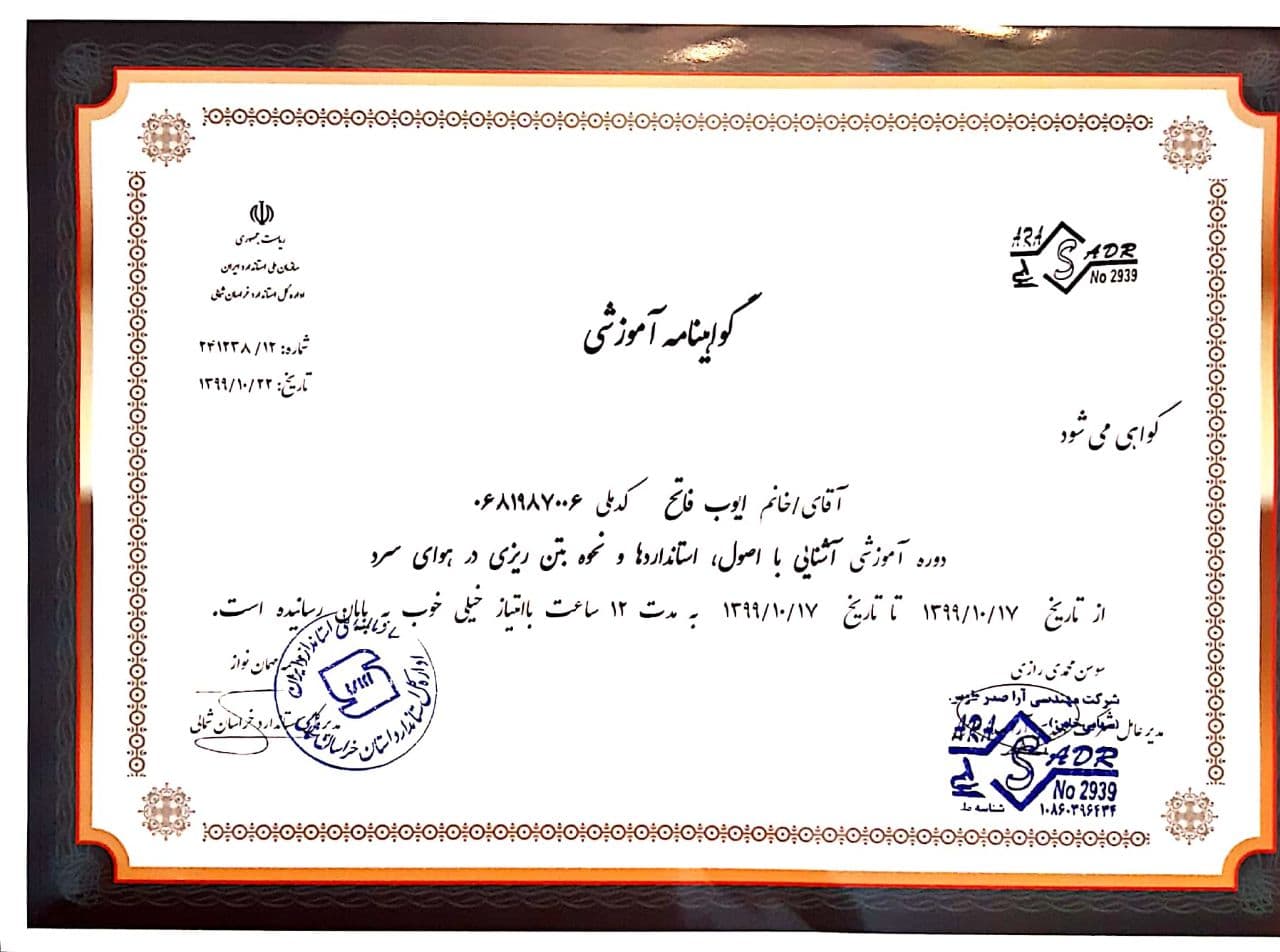 ریاست جمهوری
سازمان ملی استاندارد ایران
اداره کل استاندارد خراسان شمالی
شماره: ۲۴۱۲۳۸/۱۲
تاریخ: ۱۳۹۹/۱۰/۲۲
ARA
S ADR
No 2939
گواهینامه آموزشی
گواهی می شود
آقای/خانم ایوب فاتح کدملی ۰۶۸۱۹۸۷۰۰۶
دوره آموزشی آشنایی با اصول، استانداردها و نحوه بتن ریزی در هوای سرد
از تاریخ ۱۳۹۹/۱۰/۱۷ تا تاریخ ۱۳۹۹/۱۰/۱۷ به مدت ۱۲ ساعت باامتیاز خیلی خوب به پایان رسانیده است.
سوسن محمدی رازی
مدیرعامل
شرکت مهندسی آرا صدر
(سهامی خاص)
ARA
S ADR
No 2939
شناسه ملی ۱۰۸۶۰۳۹۶۴۳۴
مهمان نواز
مدیرکل استاندارد خراسان شمالی
اداره کل استاندارد استان خراسان شمالی